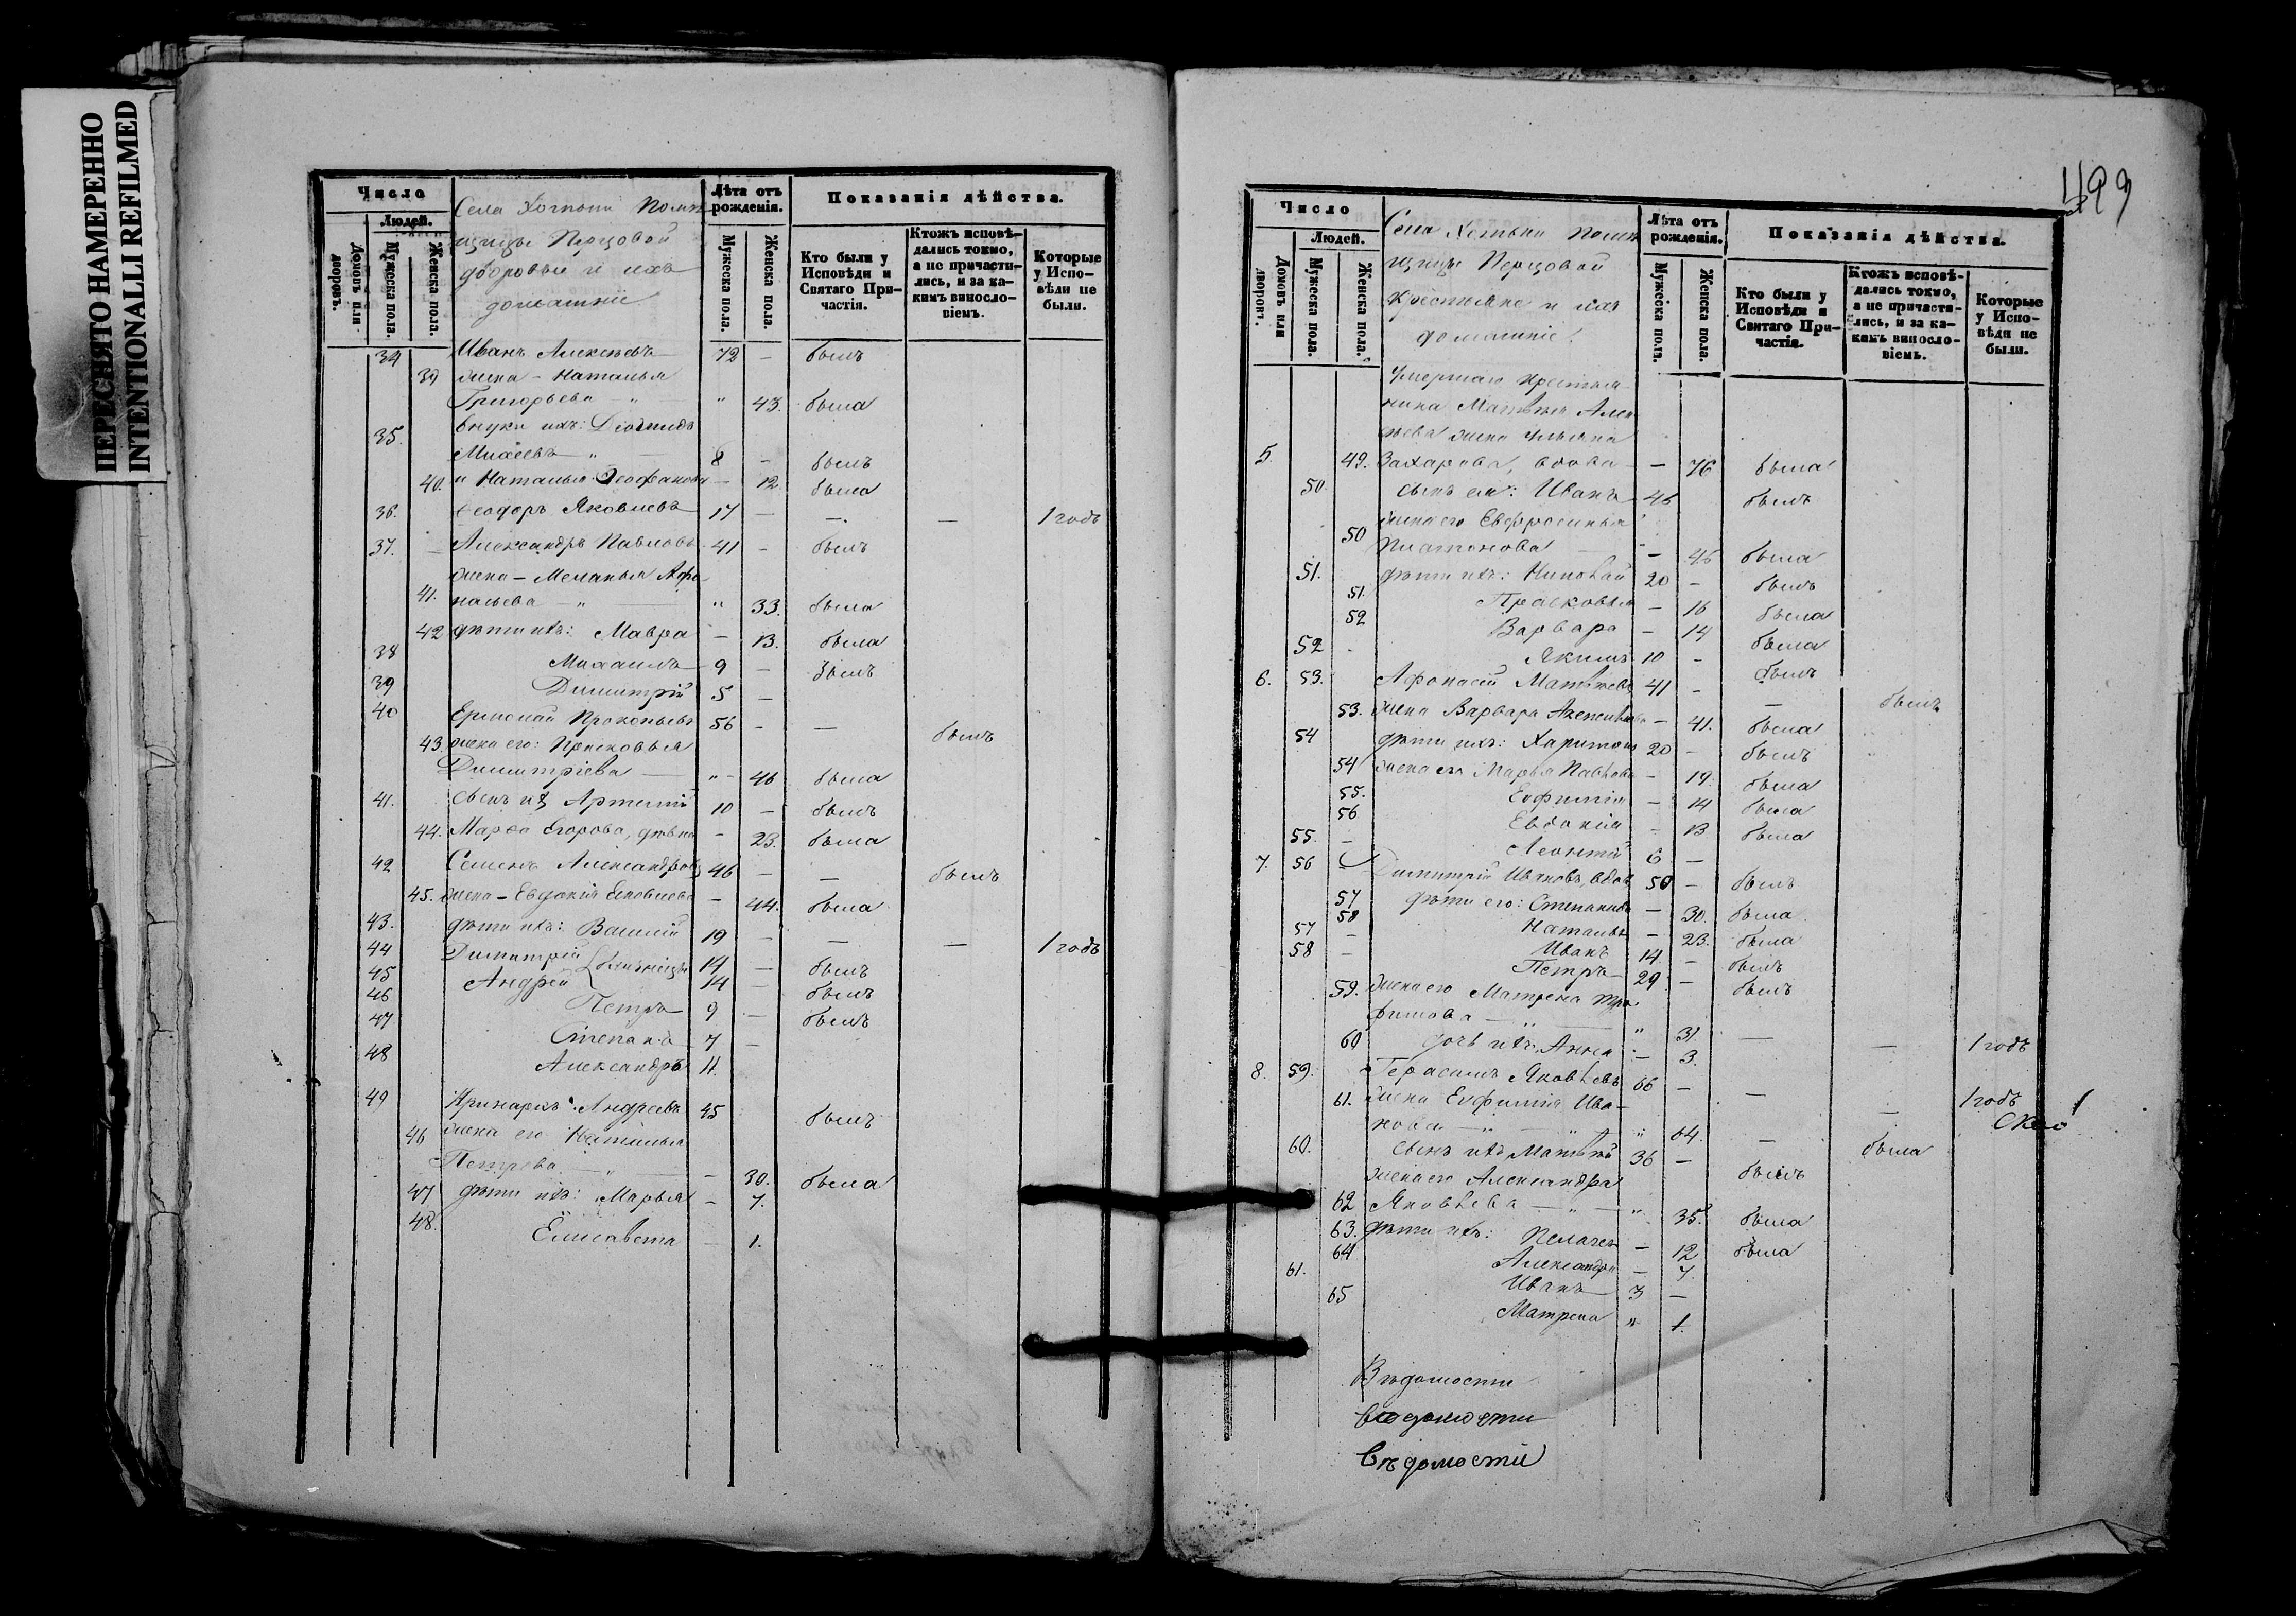 ПЕРЕСНЯТО НАМЕРЕННО
INTENTIONALLI REFILMED
Число
Людей.
Домовъ или дворовъ.
Мужеска пола.
Женска пола.
Села Хотыни помѣ
щицы Перцовой
дворовые и ихъ
домашніе
Лѣта отъ рожденія.
Мужеска пола.
Женска пола.
Показанія дѣйства.
Кто были у Исповѣди и Святаго Причастія.
Ктожъ исповѣ-
дались токмо,
а не причасти-
лись, и за ка-
кимъ виносло-
віемъ.
Которые
у Испо-
вѣди не
были.
34 Иванъ Алексѣевъ 72 — былъ
39 жена – Наталья
Григорьева „ „ 43. была
35. внуки ихъ: Діомидъ
Михеевъ „ 8 — былъ
40. и Наталья Ѳеофанова — 12. была
36. Ѳеодоръ Яковлевъ 17 — — — 1 годъ
37. — Александръ Павловъ 41 — былъ
жена – Меланья Афа
41. насьева „ „ 33. была
42 дѣти ихъ: Мавра — 13. была
38 Михаилъ 9 — былъ
39 Димитрій 5 —
40 Ермолай Прокопьевъ 56 — — былъ
43. жена его: Прасковья
Димитріева „ 46 была
41. сынъ ихъ Артемій 10 — былъ
44. Марѳа Егорова, дѣвка — 23. была
42 Семенъ Александровъ 46 — — былъ
45. жена – Евдокія — 44. была
43. дѣти ихъ: Василій 19 — — — 1 годъ
44 Димитрій 14 — былъ
близнецы
45 Андрей 14 — былъ
46 Петръ 9 — былъ
47 Степанъ 7 —
48 Александръ 4.
49 Андреевъ 45 былъ
46 жена его Наталья
Петрова „ — 30. была
47 дѣти ихъ: Марья — 7.
48. Елисавета — 1.
499
Число
Людей.
Домовъ или дворовъ.
Мужеска пола.
Женска пола.
Села Хотыни помѣ
щицы Перцовой
крестьяне и ихъ
домашніе.
Лѣта отъ рожденія.
Мужеска пола.
Женска пола.
Показанія дѣйства.
Кто были у
Исповѣди и
Святаго При-
частія.
Ктожъ исповѣ-
дались токмо,
а не причасти-
лись, и за ка-
кимъ виносло-
віемъ.
Которые
у Испо-
вѣди не
были.
Умершаго крестья
нина Матвѣя Алек
сѣева жена Ульяна
5. 49. Захарова, вдова — 76 была
50. сынъ ея: Иванъ 46 былъ
жена его Евфросинья
50 Платонова — 45 была
51. дѣти ихъ: Николай 20 — былъ
51. Прасковья — 16 была
52 Варвара — 14 была
52 Якимъ 10 — былъ
6. 53. Афонасій Матвѣевъ 41 — — былъ
53. жена Варвара — 41. была
54 дѣти ихъ: Харитонъ 20 — былъ
54 жена его Марья Павлова — 19. была
55. Евфимія — 14 была
56 Евдокія — 13 была
55. — Леонтій 6 —
7. 56 Димитрій Ивановъ, вдов 50 — былъ
57 дѣти его: Степанида — 30. была
58 Наталья — 23. была
57 — Иванъ 14 — былъ
58 — Петръ 29 — былъ
59. жена его Матрена Тро
фимова „ „ 31. — — 1 годъ
60 дочь ихъ Анна — 3.
8. 59. Герасимъ Яковлевъ 66 — — — 1 годъ
61. жена Евфимія Ива-
нова „ „ „ 64. — была
60. сынъ ихъ Матвѣй 36 — былъ
жена его Александра
62 Яковлева „ „ 35. была
63. дѣти ихъ: Пелагея — 12 была
64 Александра — 7.
61. Иванъ 3 —
65 Матрена „ 1.
Вѣдомости
Вѣдомости
Вѣдомости